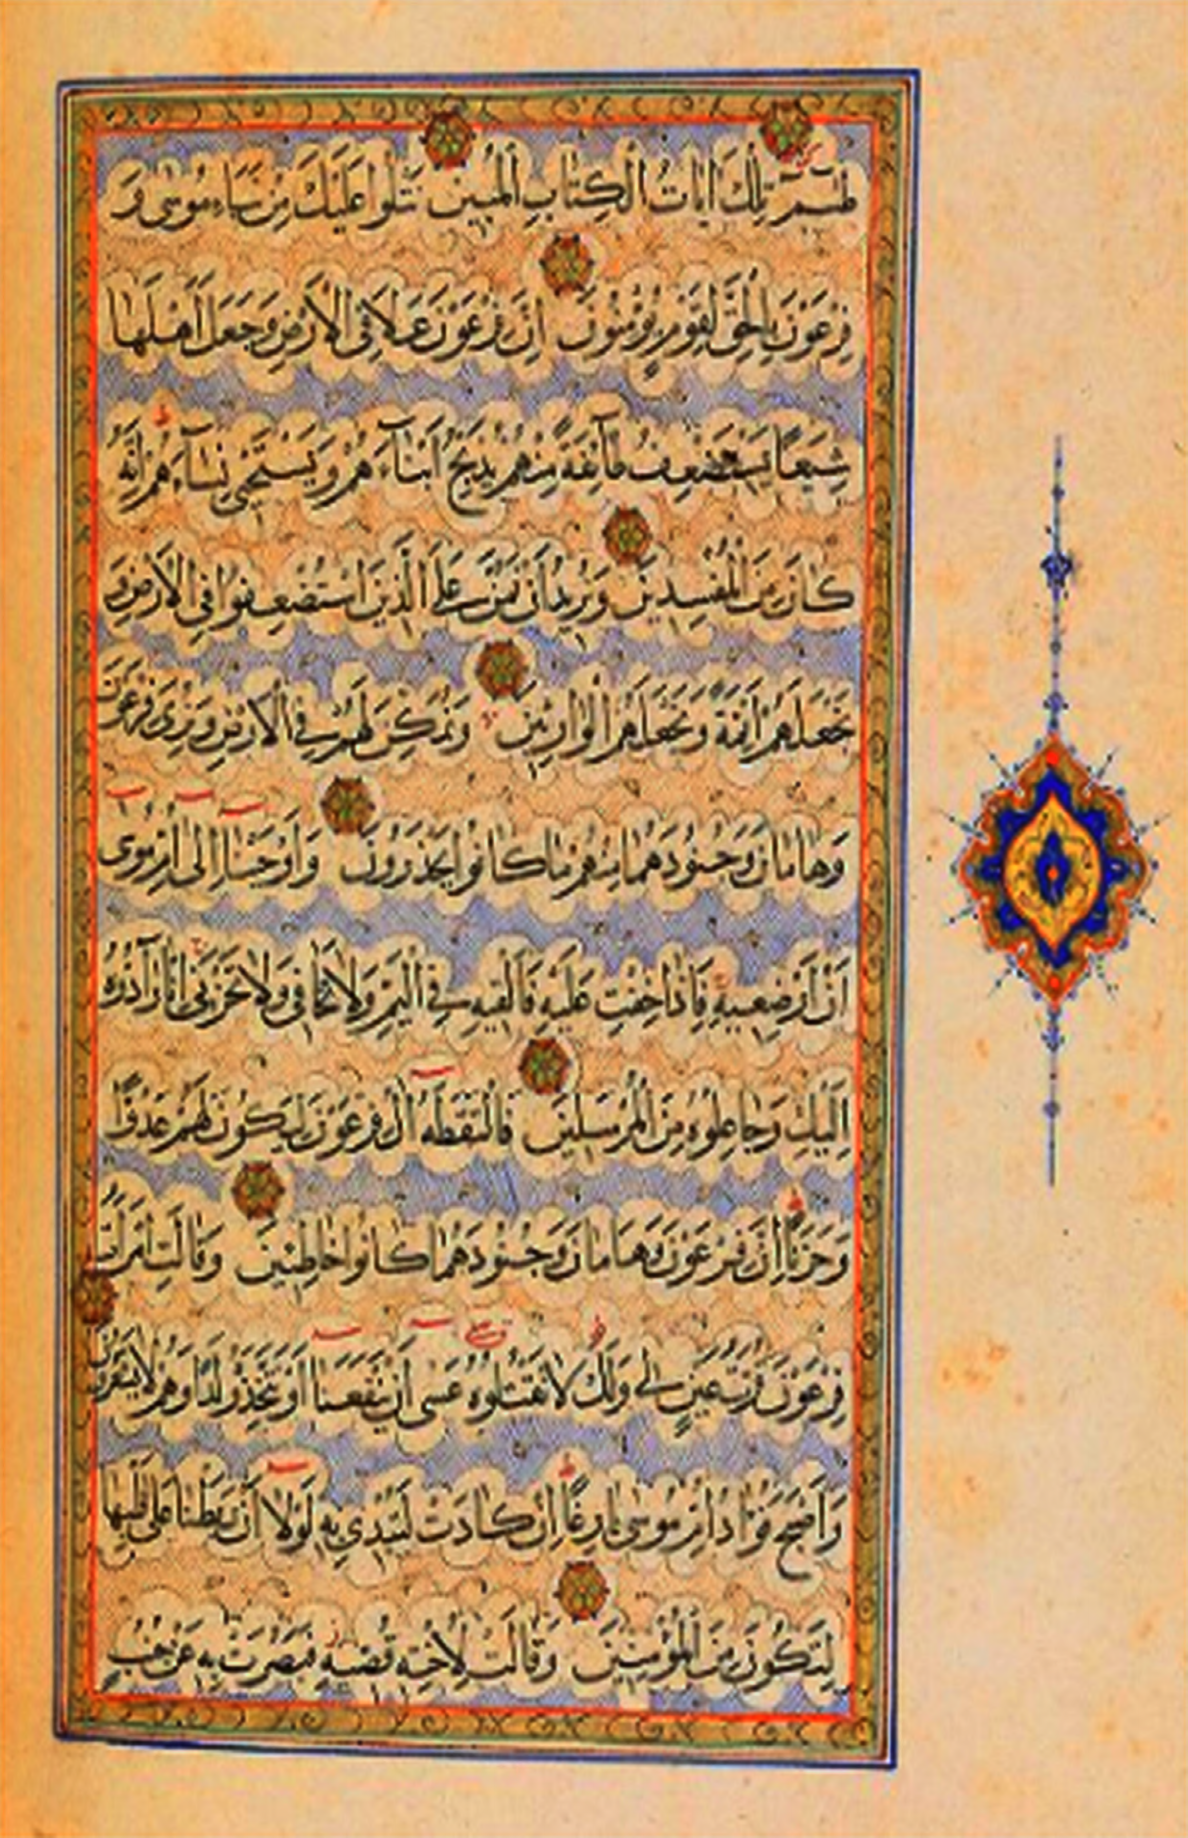 طسم تلك اٰيات الكتاب المبين نتلوا عليك من نباء موسى و
فرعون بالحق لقوم يؤمنون ان فرعون علا فى الارض وجعل اهلها
شيعا يستضعف طآئفة منهم يذبح ابناءهم ويستحيى نساءهم انه
كان من المفسدين ونريد ان نمن على الذين استضعفوا فى الارض و
نجعلهم ائمة ونجعلهم الوارثين ونمكن لهم فى الارض ونرى فرعون
وهامان وجنودهما منهم ما كانوا يحذرون واوحينا الى ام موسى
ان ارضعيه فاذا خفت عليه فالقيه فى اليم ولا تخافى ولا تحزنى انا رادوه
اليك وجاعلوه من المرسلين فالتقطه آل فرعون ليكون لهم عدوا
وحزنا ان فرعون وهامان وجنودهما كانوا خاطئين وقالت امرات
فرعون قرت عين لى ولك لا تقتلوه عسى ان ينفعنا او نتخذه ولدا وهم لا يشعرون
واصبح فؤاد ام موسى فارغا ان كادت لتبدى به لولا ان ربطنا على قلبها
لتكون من المؤمنين وقالت لاخته قصيه فبصرت به عن جنب